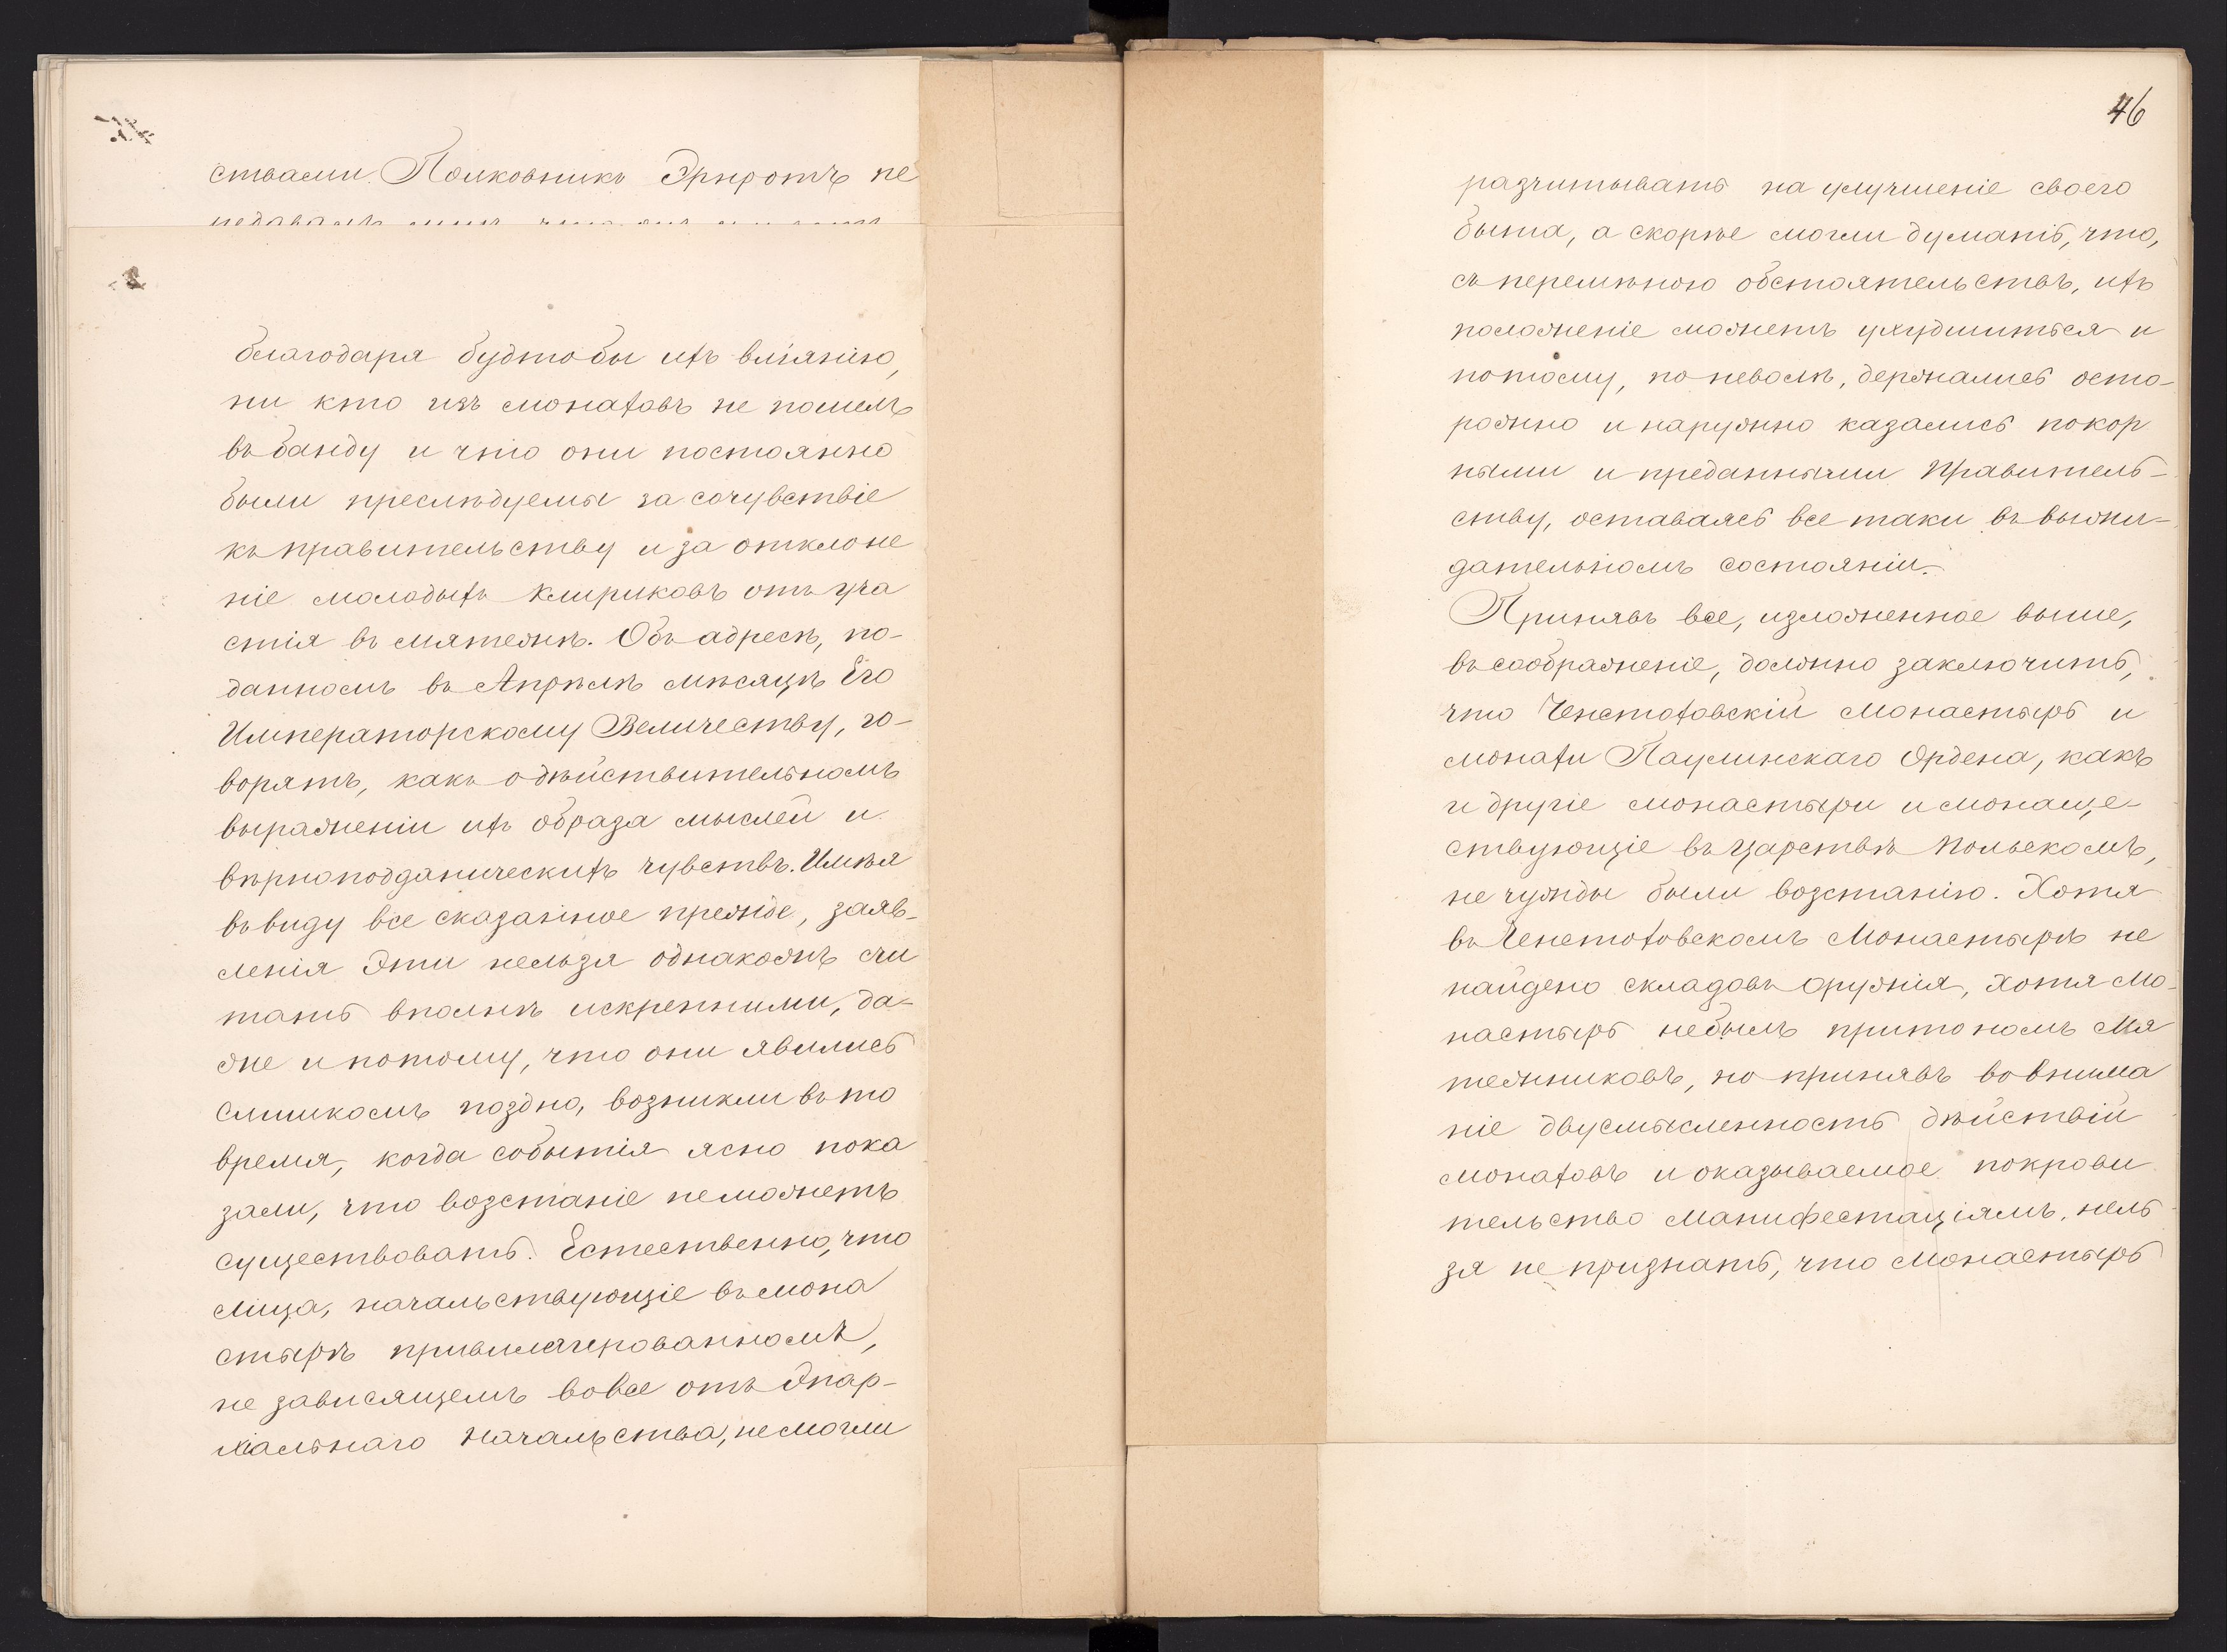 ствами. Полковникъ Эрнротъ не
благодаря будтобы ихъ вліянію,
ни кто изъ монаховъ не пошелъ
въ банду и что они постоянно
были преслѣдуемы за сочувствіе
къ правительству и за отклоне
ніе молодыхъ клириковъ отъ уча
стія въ мятежѣ. Объ адресѣ, по-
данномъ въ Апрѣлѣ мѣсяцѣ Его
Императорскому Величеству, го-
ворятъ, какъ о дѣйствительномъ
выраженіи ихъ образа мыслей и
вѣрноподданическихъ чувствъ. Имѣя
въ виду все сказанное прежде, заяв-
ленія эти нельзя однакожъ счи
тать вполнѣ искренними, да-
же и потому, что они явились
слишкомъ поздно, возникли въ то
время, когда событія ясно пока
зали, что возстаніе неможетъ
существовать. Естественно, что
лица, начальствующіе въ мона
стырѣ привилегированномъ,
не зависящемъ вовсе отъ Эпар-
хіальнаго Начальства, не могли
46
разчитывать на улучшеніе своего
быта, а скорѣе могли думать, что,
съ перемѣною обстоятельствъ, ихъ
положеніе можетъ ухудшиться и
потому, по неволѣ, держались осто-
рожно и наружно казались покор
ными и преданными Правитель-
ству, оставаясь все таки въ выжи-
дательномъ состояніи.
Принявъ все, изложенное выше,
въ соображеніе, должно заключить,
что Ченстоховскій Монастырь и
монахи Паулинскаго Ордена, какъ
и другіе монастыри и монаше-
ствующіе въ Царствѣ Польскомъ,
не чужды были возстанію. Хотя
въ Ченстоховскомъ Монастырѣ не
найдено складовъ оружія, хотя Мо-
настырь небылъ притономъ Мя
тежниковъ, но принявъ во внима
ніе двусмысленность дѣйствій
монаховъ и оказываемое покрови
тельство Манифестаціямъ, нель
зя не признать, что Монастырь